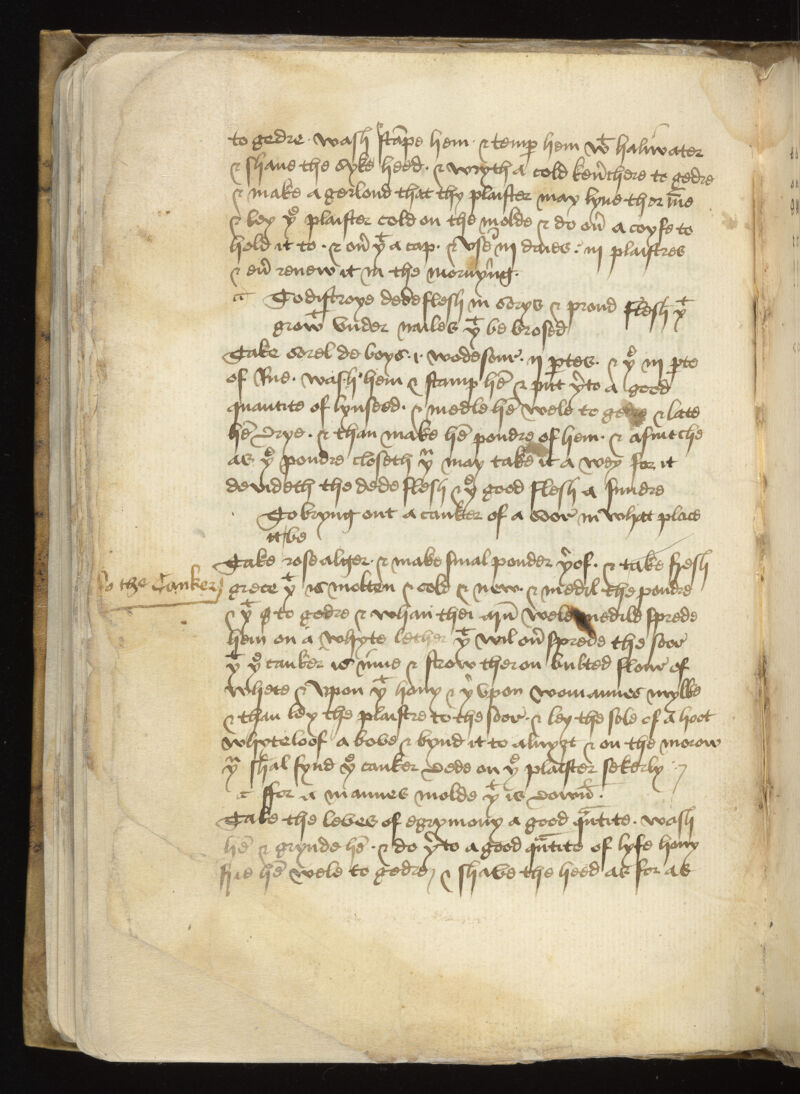 to gedre · wash stāpe hem · & temp hem wᵗ haliwater
& shaue the syke heed · & wryth a cold keu̓chere to gedre
& make a gerlond that thy plaister may lyue ther īne
& ley yᵉ plaister cold on the molde & do ou̓ a coyfe to
hold it to · & ou̓ yᵗ a cap · & vse iij daies · iij plaistres
& eu̓ renew it in the mornyng ·
To distroye dede flesh in sorys & proud flesh yᵗ
growᵗ vnder nailes yᵗ be brosed
Take sorel de boys · i · wodesour · ij ptes · & yᵉ iij pte
of Rue · wash hem & stamp hē & put yʳto a good
quantite of lynseed · & medle hē wele to gedre & late
hē drye · & than make hē poudre of hem · & asmtche
as yᵉ poudre closeth yᵘ may take it a wey for it
devideth the dede flesh & yᵉ good flesh a sundre
To bryng out a canker of a soor in what place
it be
Take rose alger · & make smal pouder yʳof · & take fresh
to the Canker
grece yᵗ is molten & cold & new · & medil the poudre
& yᵗ g to gedre & whan thei arn̄ wele medild sprede
hem on a whyte lether yᵗ wil ou̓ sprede the soor
yᵗ yᵉ canker is inne & strow theron bulted flour of
whete & vpon yᵗ hony & yʳ vpon womannes mylke
& than ley the plaistre to the soor · & ley the sole of a hoot
whyte loof a bove & bynd it to alnyȝt & on the morow
yᵘ shal fynd yᵉ canker dede on yᵉ plaister sekerly
ffor a mannes molde yᵗ is down̄ ·
Take the leves of egrymony a good qn̄tite · wash
hē & grynde hē · & do yʳto a good qn̄tite of lyfe hony
frie hē wele to gedre & shave the heed as for as